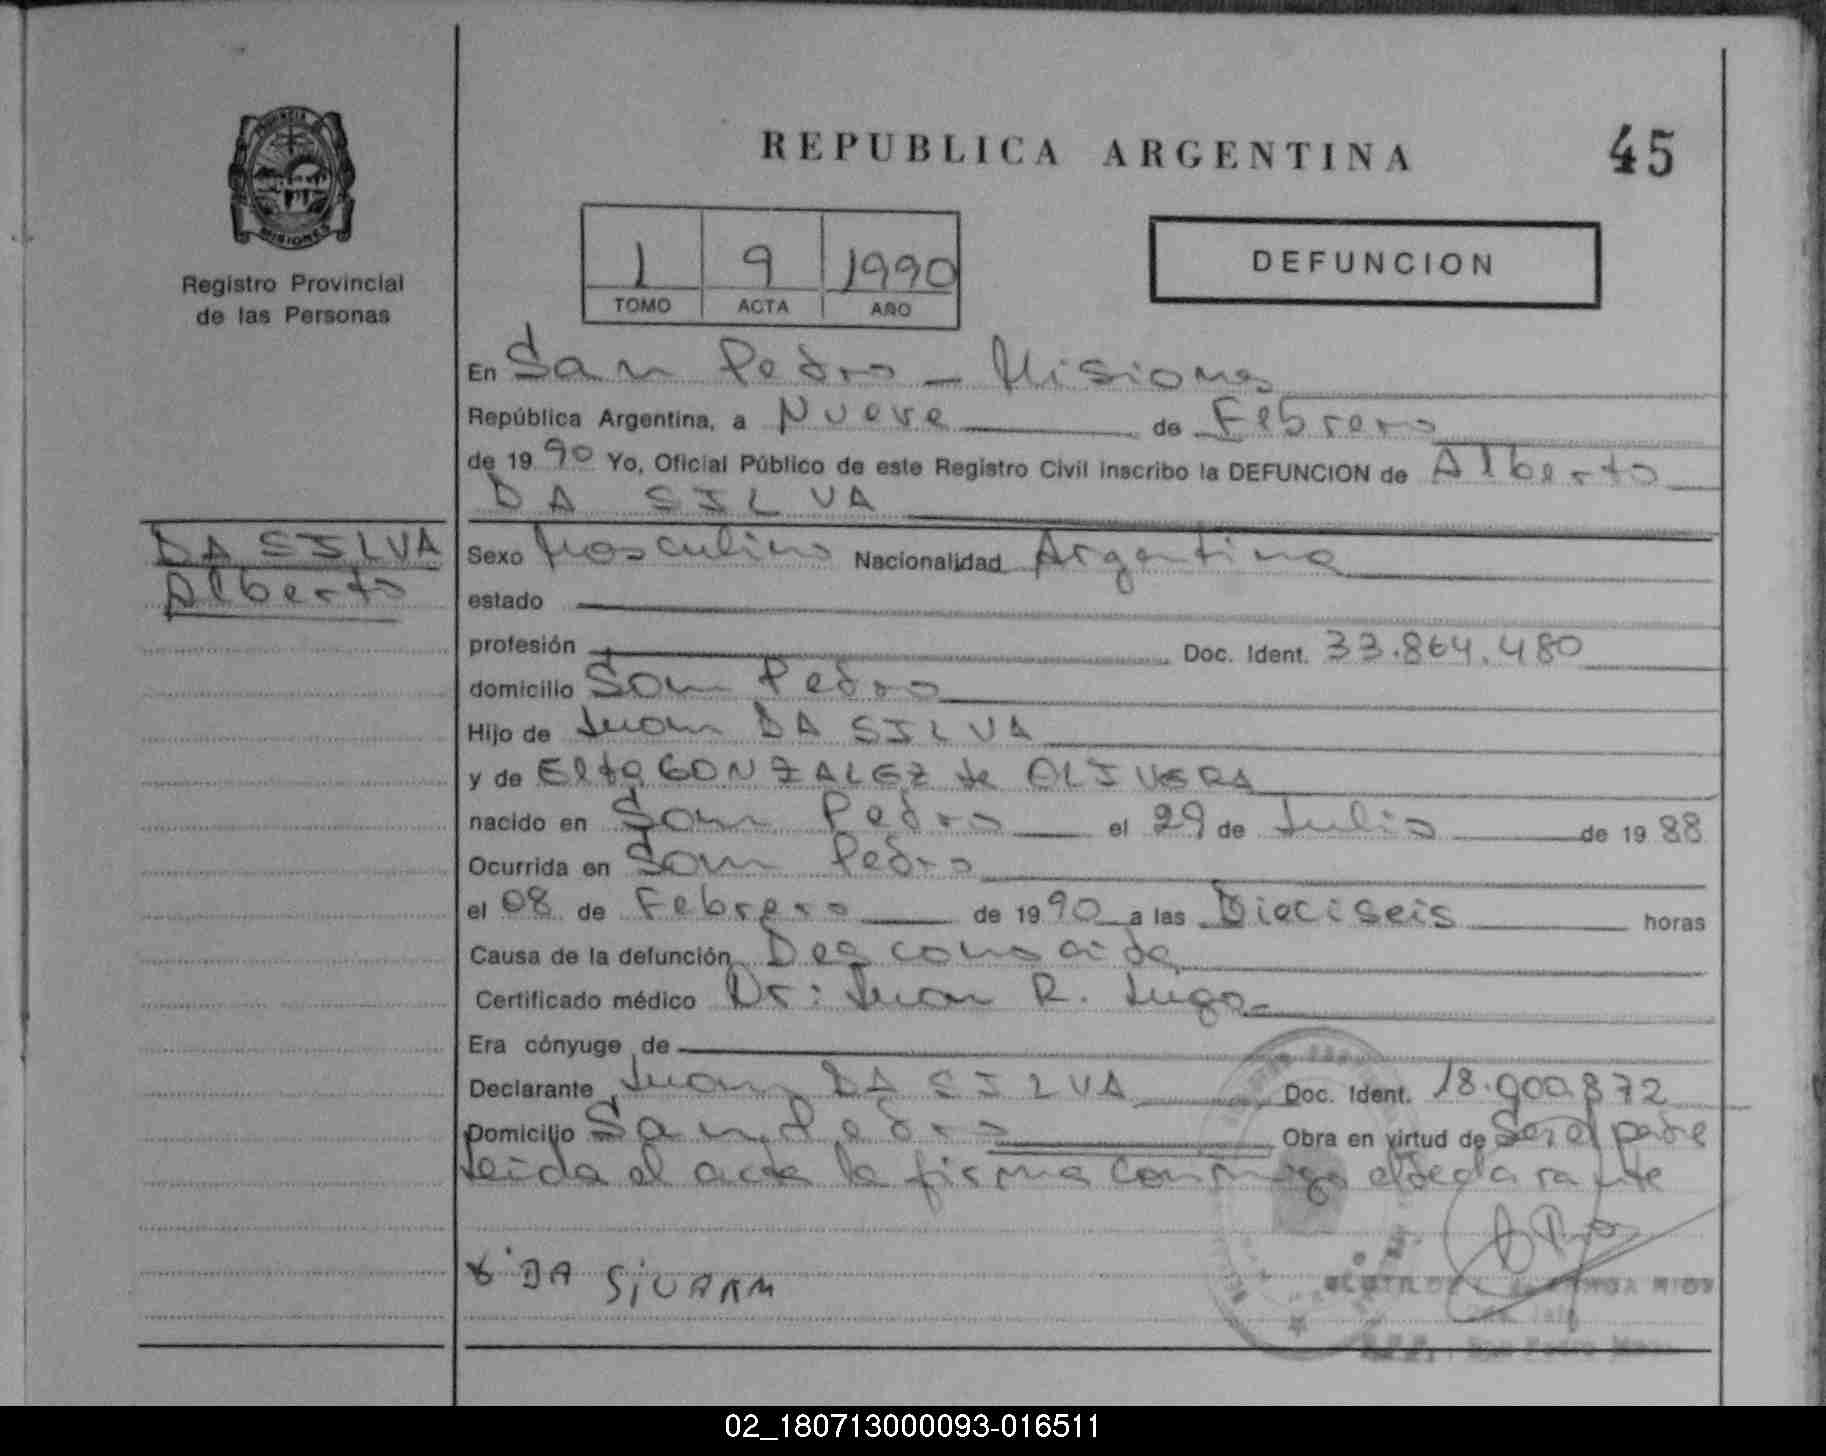 PROVINCIA
MISIONES
Registro Provincial
de las Personas
DA SILVA
Alberto
REPUBLICA ARGENTINA 45
1 9 1990
TOMO ACTA AÑO
DEFUNCION
En San Pedro - Misiones
República Argentina, a Nueve de Febrero
de 19 90 Yo, Oficial Público de este Registro Civil inscribo la DEFUNCION de Alberto
DA SILVA
Sexo Masculino Nacionalidad Argentina
estado
profesión Doc. Ident. 33.864.480
domicilio San Pedro
Hijo de Juan DA SILVA
y de Elta GONZALEZ de OLIVERA
nacido en San Pedro el 29 de Julio de 19 88
Ocurrida en San Pedro
el 08 de Febrero de 19 90 a las Dieciseis horas
Causa de la defunción Desconocida
Certificado médico Dr: Juan R. Lugo
Era cónyuge de
Declarante Juan DA SILVA Doc. Ident. 18.900.872
Domicilio San Pedro Obra en virtud de Ser el padre
Leida el acta la firma conmigo el declarante
DA SiUARM
02_180713000093-016511